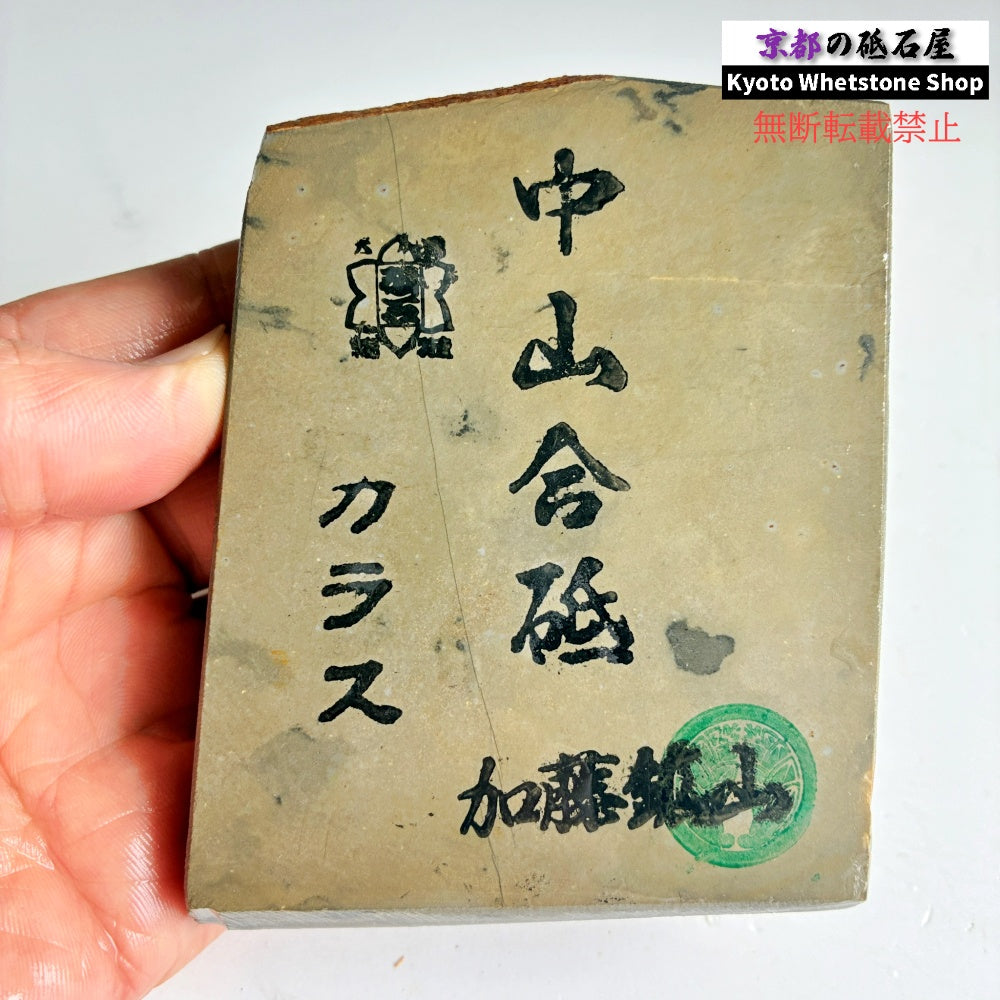 京都の砥石屋
Kyoto Whetstone Shop
無断転載禁止
中山合砥
カラス
加藤鉱山